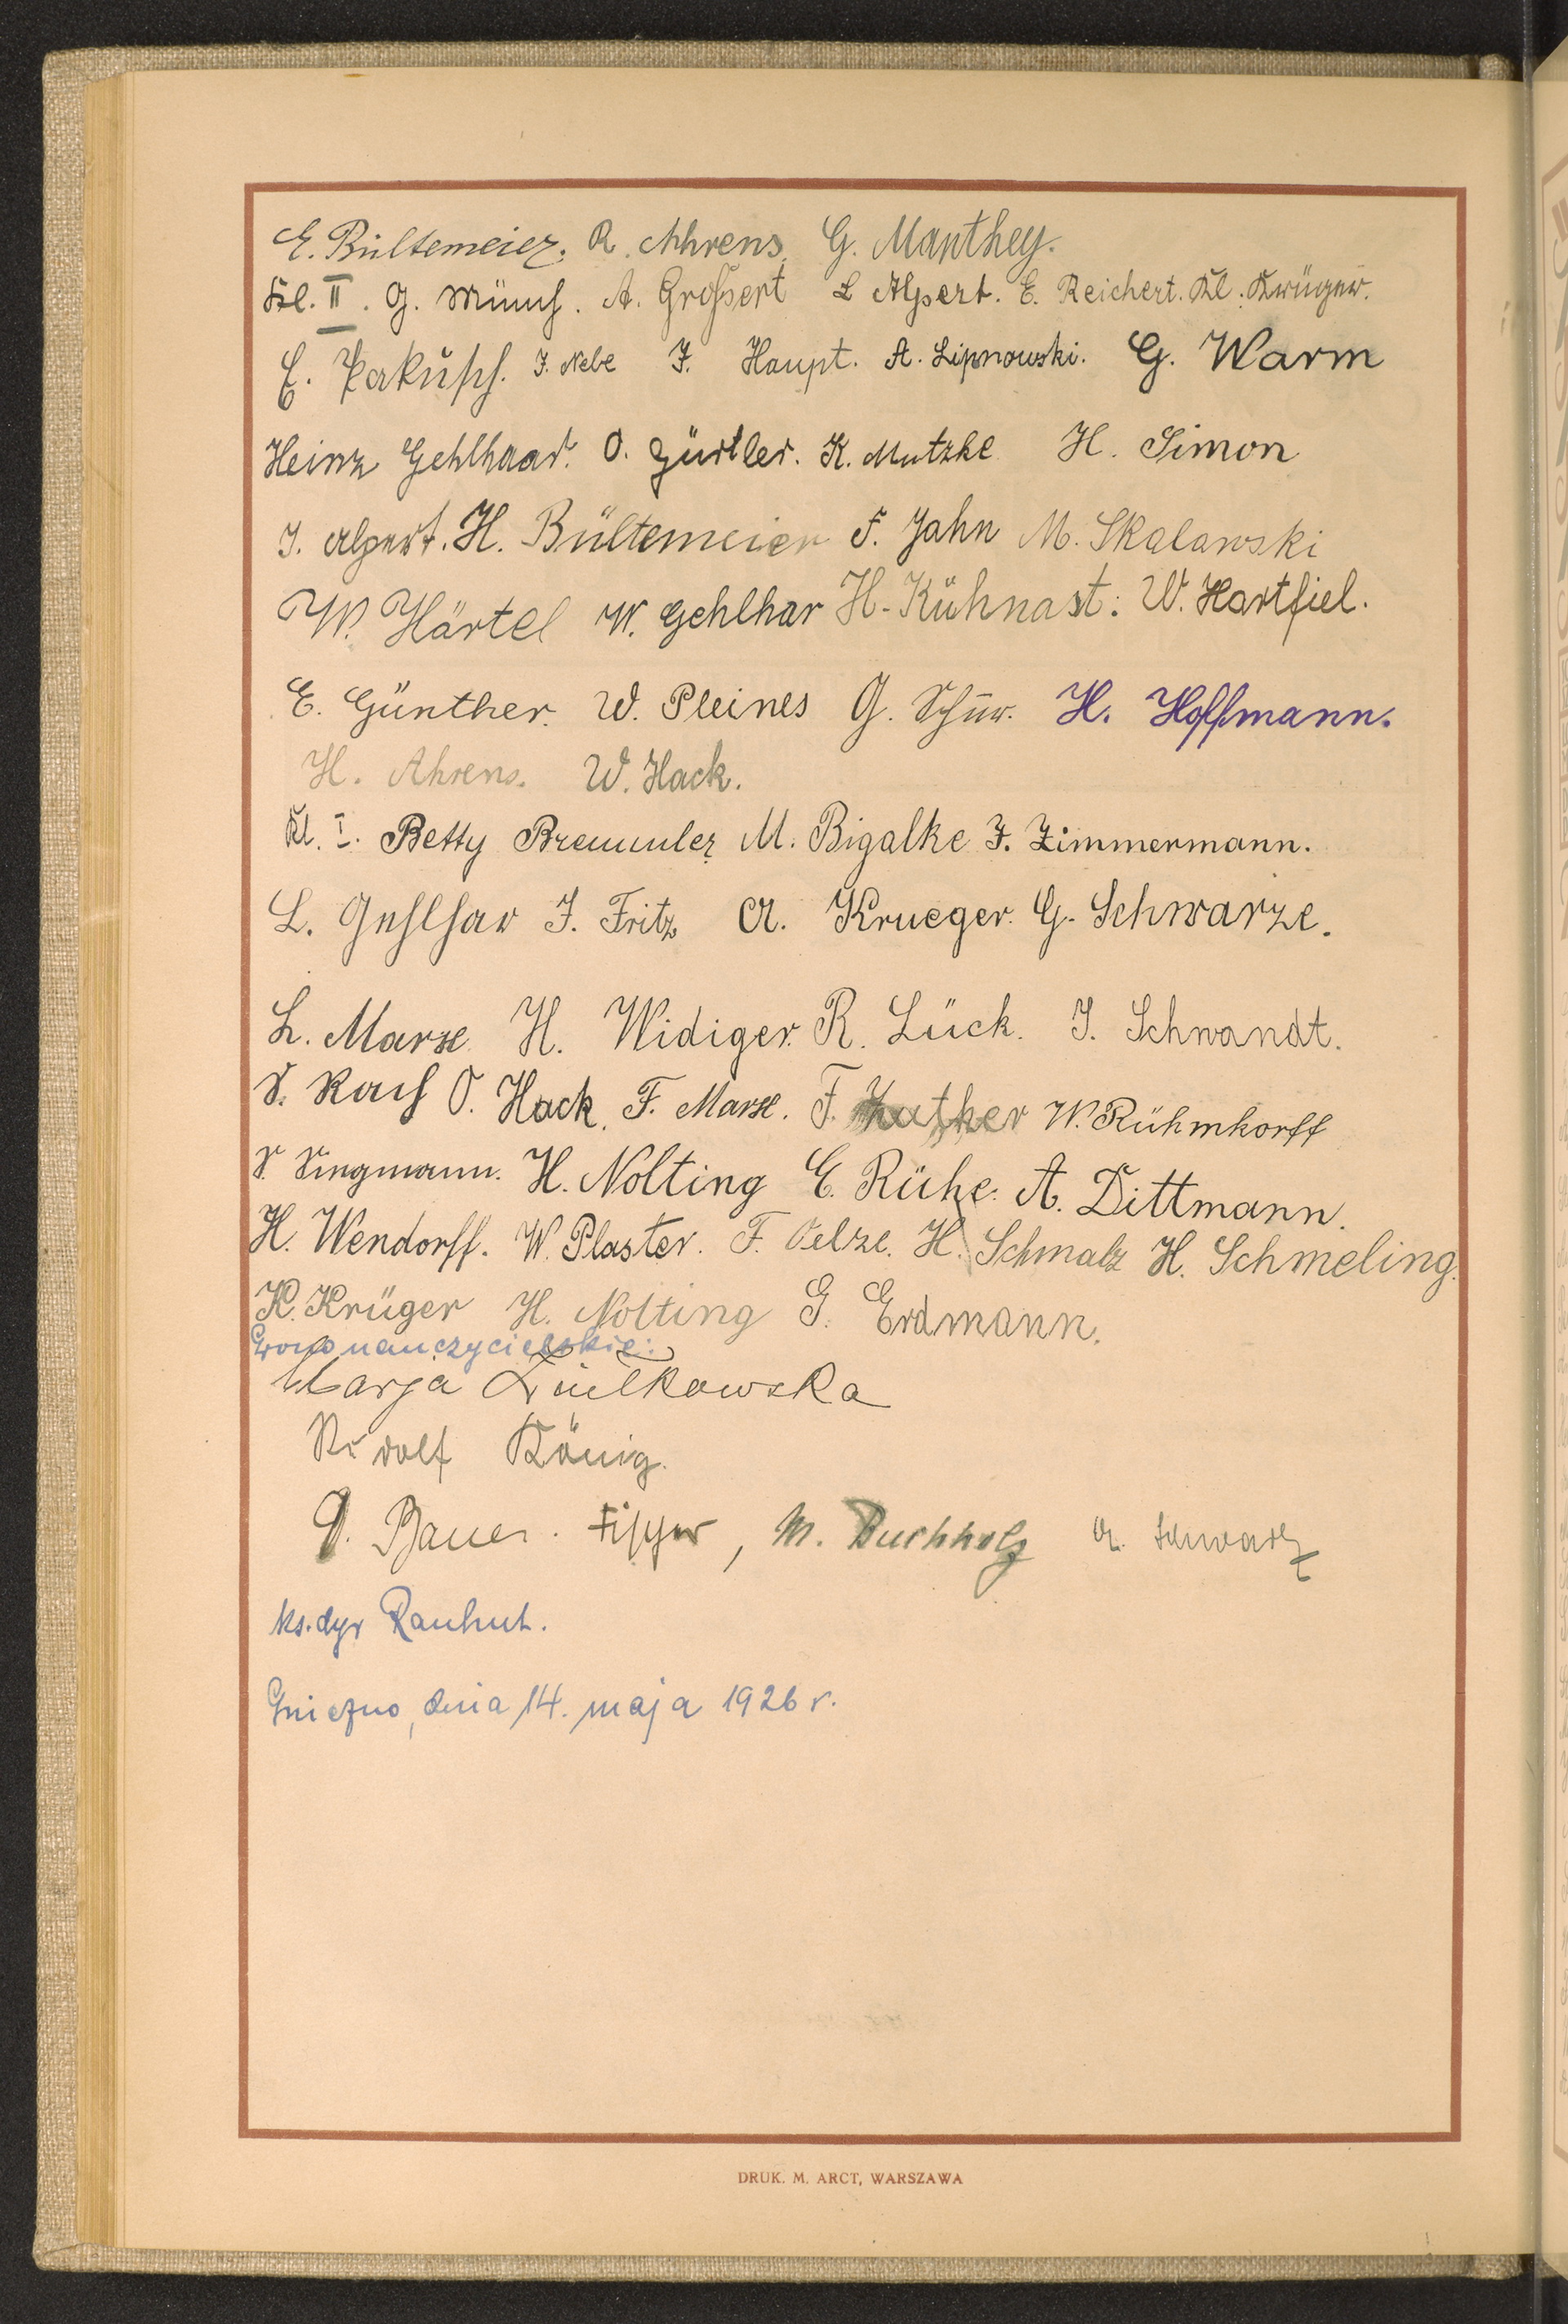 E. Bültemeier. R. Ahrens. G. Manthey.
Kl. II. G. Münch. A. Großert L Alpert. E. Reichert. Kl. Krüger.
E. J. Nebe F. Haupt. A. Lipnowski. G. Warm
Heinz Gehlhaar. O. Gürtler. K. Mutzke H. Simon
J. Alpert. H. Bültemeier F. Jahn M. Skalawski
W. Härtel W. Gehlhar H. Kühnast. W. Hartfiel.
E. Günther. W. Pleines G. H. Hoffmann.
H. Ahrens. W. Hack.
Kl. I. Betty Bremmler M. Bigalke F. Zimmermann.
L. Gehlhar J. Fritz A. Krueger. G. Schwarze.
L. Marx H. Widiger. R. Lück. J. Schwandt.
S. Koch O. Hack. F. Marx. F. W. Rühmkorff
S. H. Nolting E. Rühe. A. Dittmann.
H. Wendorff. W. Plaster. F. Oelze. H. Schmalz H. Schmeling.
K. Krüger H. Nolting G. Erdmann.
Grono nauczycielskie:
Marja Zielkowska
Rudolf König.
O. Bauer. Fischer, M. Buchholz A. Schwarz
ks. dyr Rauhut.
Gniezno, dnia 14. maja 1926 r.
DRUK. M. ARCT, WARSZAWA